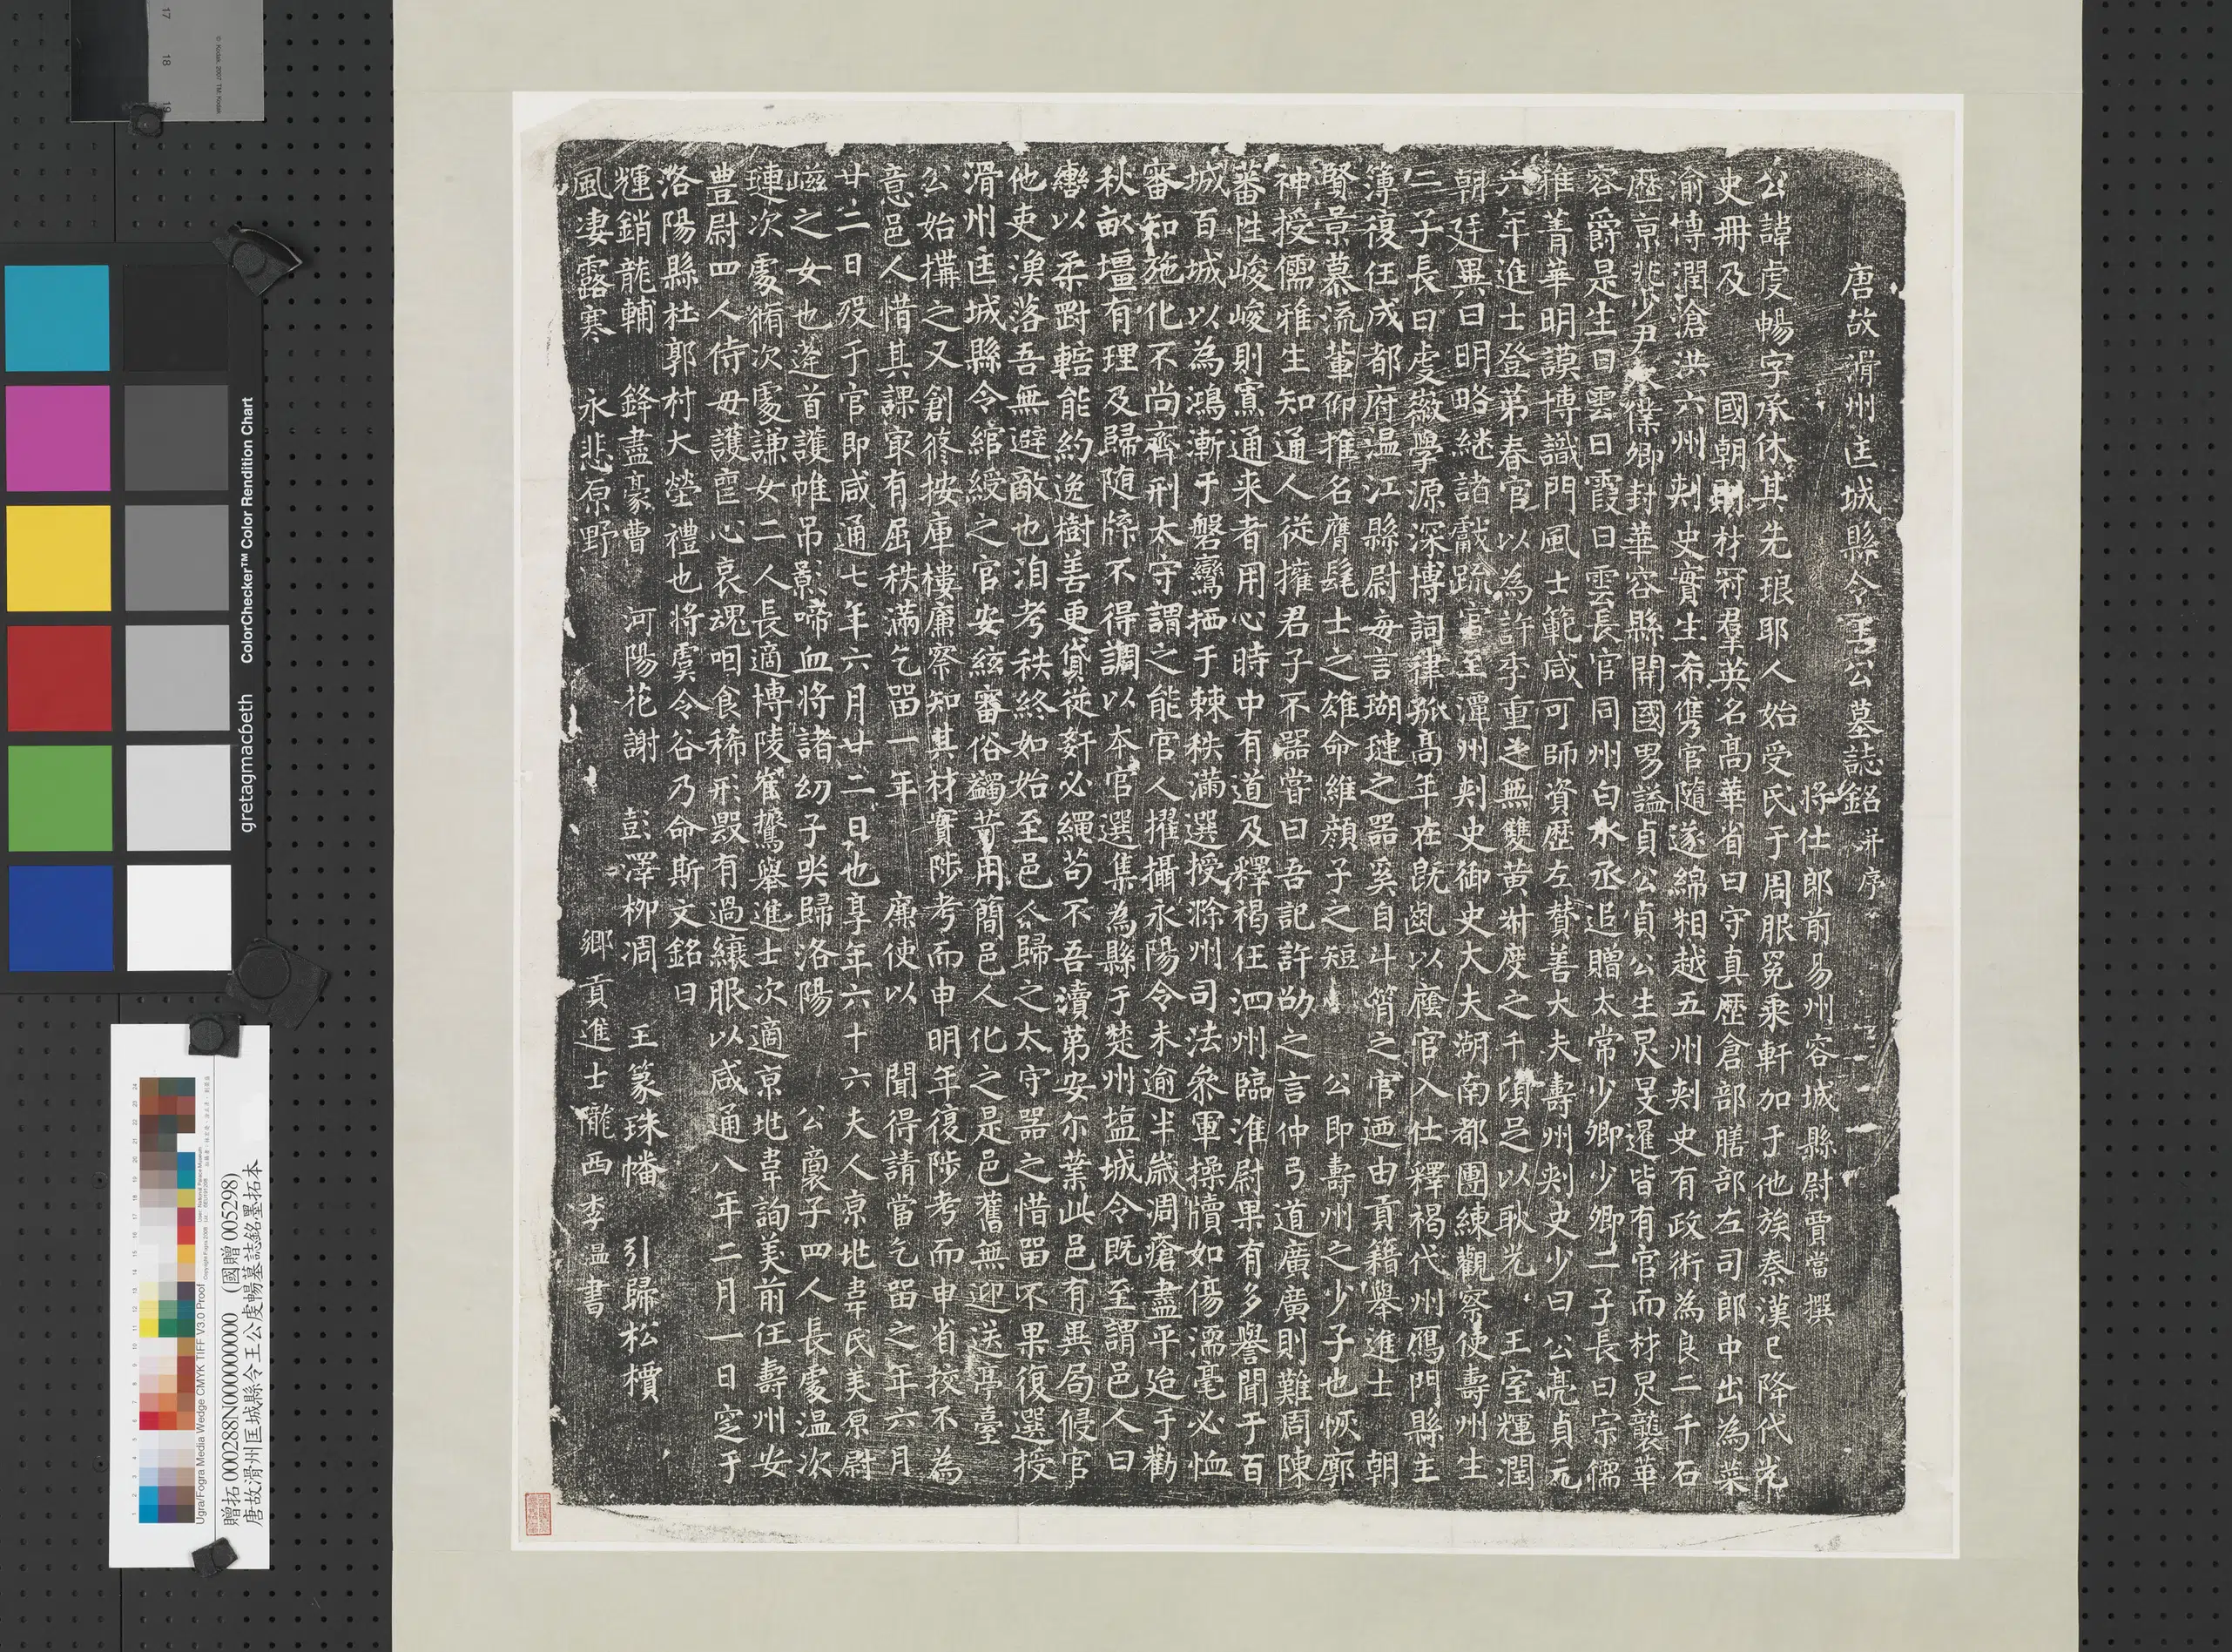 唐故滑州匡城縣令王公墓誌銘并序
將仕郎前易州容城縣尉賈當撰
公諱虔暢字承休其先琅耶人始受氏于周服冕乘軒加于他族秦漢已降代光
史冊及 國朝 材冠羣英名高華省曰守真歷倉部膳部左司郎中出為萊
渝博潤滄洪六州刾史實生希雋官隨遂綿相越五州刾史有政術為良二千石
歷京兆少尹 僕卿封華容縣開國男謚貞公貞公生炅旻暹皆有官而材炅襲華
容爵是生曰雲曰霞曰雲長官同州白水丞追贈太常少卿少卿二子長曰宗儒
雅菁華明謨博識門風士範咸可師資歷左贊善大夫壽州刾史少曰公亮貞元
六年進士登第春官以為許李重之無雙黃叔度之千頃足以耿光 王室輝潤
朝廷異日明略継諸獻疏官至潭州刾史御史大夫湖南都團練觀察使壽州生
二子長曰虔薇學源深博詞律孤高年在既齔以廕官入仕釋褐代州鴈門縣主
簿復任成都府溫江縣尉每言瑚璉之器奚自斗筲之官迺由貢籍舉進士 朝
賢景慕流輩仰推名膺髦士之雄命維顏子之短 公即壽州之少子也恢廓
神授儒雅生知通人從擁君子不器嘗曰吾記許劭之言仲弓道廣廣則難周陳
蕃性峻峻則寡通来者用心時中有道及釋褐任泗州臨淮尉果有多譽聞于百
城百城以為鴻漸于磐鸞栖于棘秩滿選授滁州司法叅軍操牘如傷濡毫必恤
審知施化不尚齊刑太守謂之能官人擢攝永陽令未逾半歲凋瘡盡平迨于勸
秋畝壃有理及歸随牒不得調以本官選集為縣于楚州塩城令既至謂邑人曰
轡以柔罸轄能約逸樹善更貸従姧必繩苟不吾瀆第安尔業此邑有異局侵官
他吏漁落吾無避敵也洎考秩終如始至邑人歸之太守器之惜留不果復選授
滑州匡城縣令綰綬之官安絃審俗蠲苛用簡邑人化之是邑舊無迎送亭臺
公始搆之又創修按庫樓廉察知其材實陟考而申明年復陟考而申省校不為
意邑人惜其課冣有屈秩滿乞留一年 廉使以 聞得請當乞留之年六月
廿二日歿于官即咸通七年六月廿二日也享年六十六夫人京兆韋氏美原尉
嵫之女也遂首護帷吊影啼血將諸幼子哭歸洛陽 公裹子四人長處温次
璉次處循次處謙女二人長適博陵崔鷟舉進士次適京兆韋詢美前任壽州安
豊尉四人侍毋護喪心哀魂咽食稀形毀有過纕服以咸通八年二月一日窆于
洛陽縣杜郭村大塋禮也將虞令谷乃命斯文銘曰
輝銷龍輔 鋒盡豪曹 河陽花謝 彭澤柳凋 王篆珠幡 引歸松檟
風凄露寒 永悲原野 鄉貢進士隴西李温書
贈拓 000288N000000000 (國贈 005298)
唐故滑州匡城縣令王公虔暢墓誌銘墨拓本
Ugra/Fogra Media Wedge CMYK TIFF V3.0 Proof
ColorChecker™ Color Rendition Chart
gretagmacbeth
© Kodak, 2007 TM: Kodak
17 18 19